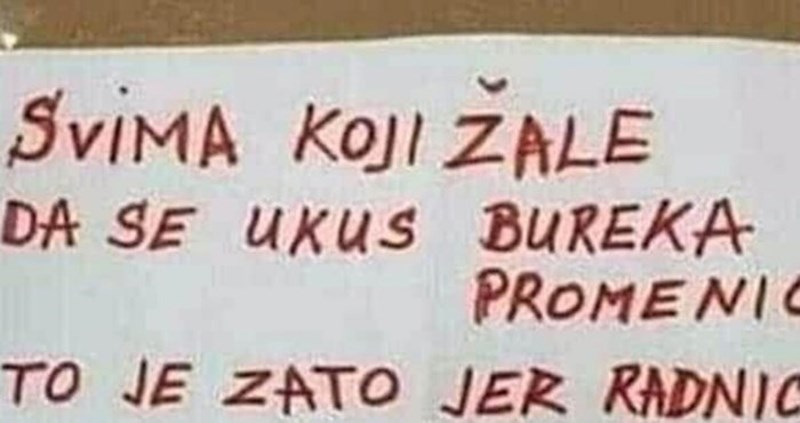 SVIMA KOJI ŽALE
DA SE UKUS BUREKA
PROMENIO
TO JE ZATO JER